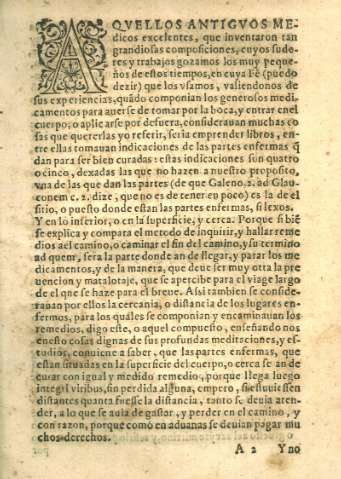 AQVELLOS ANTIGVOS ME-
dicos excelentes, que inuentaron tan
grandiosas composiciones, cuyos sudo-
res y trabajos gozamos los muy peque-
ños de estos tiempos, en cuya Fè (puedo
dezir) que los vsamos, valiendonos de
sus experiencias, quãdo componian los generosos medi-
camentos para auerse de tomar por la boca, y entrar en el
cuerpo, o aplicarse por defuera, considerauan muchas co-
sas que quererlas yo referir, seria emprender libros, en-
tre ellas tomauan indicaciones de las partes enfermas q̃
dan para ser bien curadas: estas indicaciones son quatro
o cinco, dexadas las que no hazen a nuestro proposito,
vna de las que dan las partes (de que Galeno. 2. ad Glau-
conem c. 2. dize, que no es de tener en poco) es la de el
sitio, o puesto donde estan las partes enfermas, si lexos.
Y en lo inferior, o en la superficie, y cerca. Porque si biẽ
se explica y compara el metodo de inquirir, y hallar reme
dios al camino, o caminar el fin del camino, y su termino
ad quem, serà la parte donde an de llegar, y parar los me
dicamentos, y de la manera, que deue ser muy otra la pre
uencion y matalotaje, que se apercibe para el viage largo
de el que se haze para el breue. Assi tambien se conside-
rauan por ellos la cercania, o distancia de los lugares en-
fermos, para los quales se componian y encaminauan los
remedios, digo este, o aquel compuesto, enseñando nos
en esto cosas dignas de sus profundas meditaciones, y es-
tudios, conuiene a saber, que las partes enfermas, que
estan situadas en la superficie del cuerpo, o cerca se an de
curar con igual y medido remedio, porque llega luego
integri viribus, sin perdida alguna, empero, si estuuiessen
distantes quanta fuesse la distancia, tanto se deuia aten-
der, a lo que se auia de gastar, y perder en el camino, y
con razon, porque como en aduanas se deuian pagar mu
chos derechos.
A 2 Y no